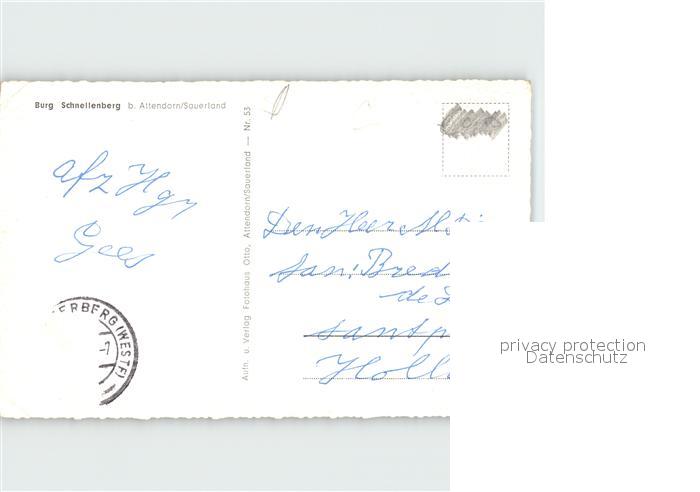 Burg Schnellenberg b. Attendorn/Sauerland
afz H
Gees
ERBERG (WESTF)
-7
Aufn. u. Verlag Fotohaus Otto, Attendorn/Sauerland — Nr. 53
Den Heer
San: Bred
de
Santp
Holl
privacy protection
Datenschutz